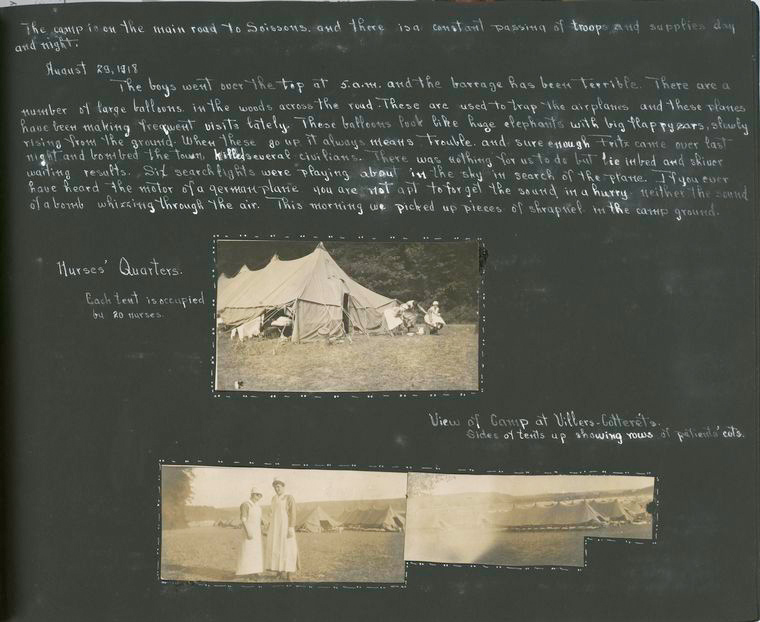 The camp is on the main road to Soissons. and there is a constant passing of troops and supplies day
and night.
August 29, 1918
The boys went over the top at 5. a.m. and the barrage has been terrible. There are a
number of large balloons in the woods across the road. These are used to trap the airplanes and these planes
have been making frequent visits lately. These balloons look like huge elephants with big flappy ears, slowly
rising from the ground. When these go up it always means trouble. and sure enough Fritz came over last
night and bombed the town, killed several civilians. There was nothing for us to do but lie in bed and shiver
waiting results. Six searchlights were playing about in the sky in search of the plane. If you ever
have heard the motor of a german plane you are not apt to forget the sound in a hurry. neither the sound
of a bomb whizzing through the air. This morning we picked up pieces of shrapnel in the camp ground.
Nurses' Quarters.
Each tent is occupied
by 20 nurses.
View of Camp at Villers-Cotterêts.
Sides of tents up showing rows of patients' cots.